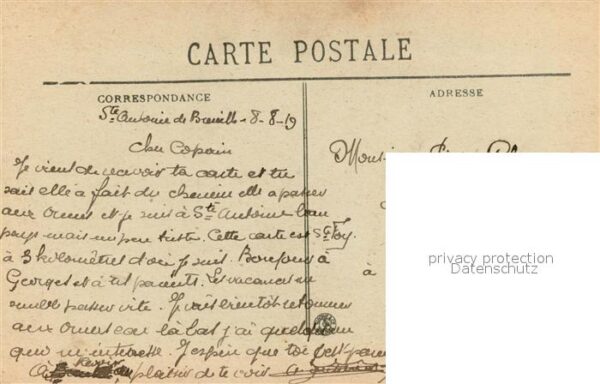 CARTE POSTALE
CORRESPONDANCE
ADRESSE
Ste Antoine de Breuilh - 8-8-19
Cher Copain
Je viens de recevoir ta carte et tu
sais elle a fait du chemin elle a passer
aux Ormes et je suis à St Antoine beau
pays mais un peu triste. Cette carte est Ste Foy
à 3 kilomètres d'où je suis. Bonjour à
Georges et à tes parents. Les vacances me
semble passer vite. Je vais bientôt retourner
aux Ormes car la bas j'ai quelqu'un
qui m'interesse. J'espère que toi
à Revoir au plaisir de te voir
privacy protection
Datenschutz